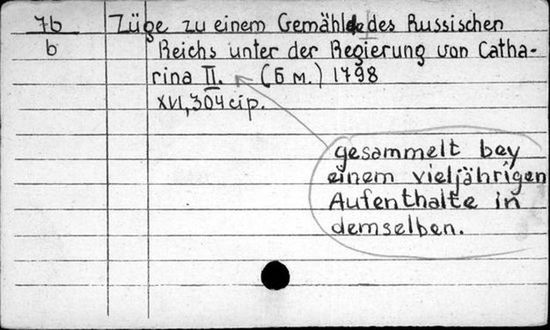 7b
b
Züge zu einem Gemählde des Russischen
Reichs unter der Regierung von Catha-
rina II. (Б м.) 1798
XVI, 304 стр.
gesammelt bey
einem vieljährigen
Aufenthalte in
demselben.